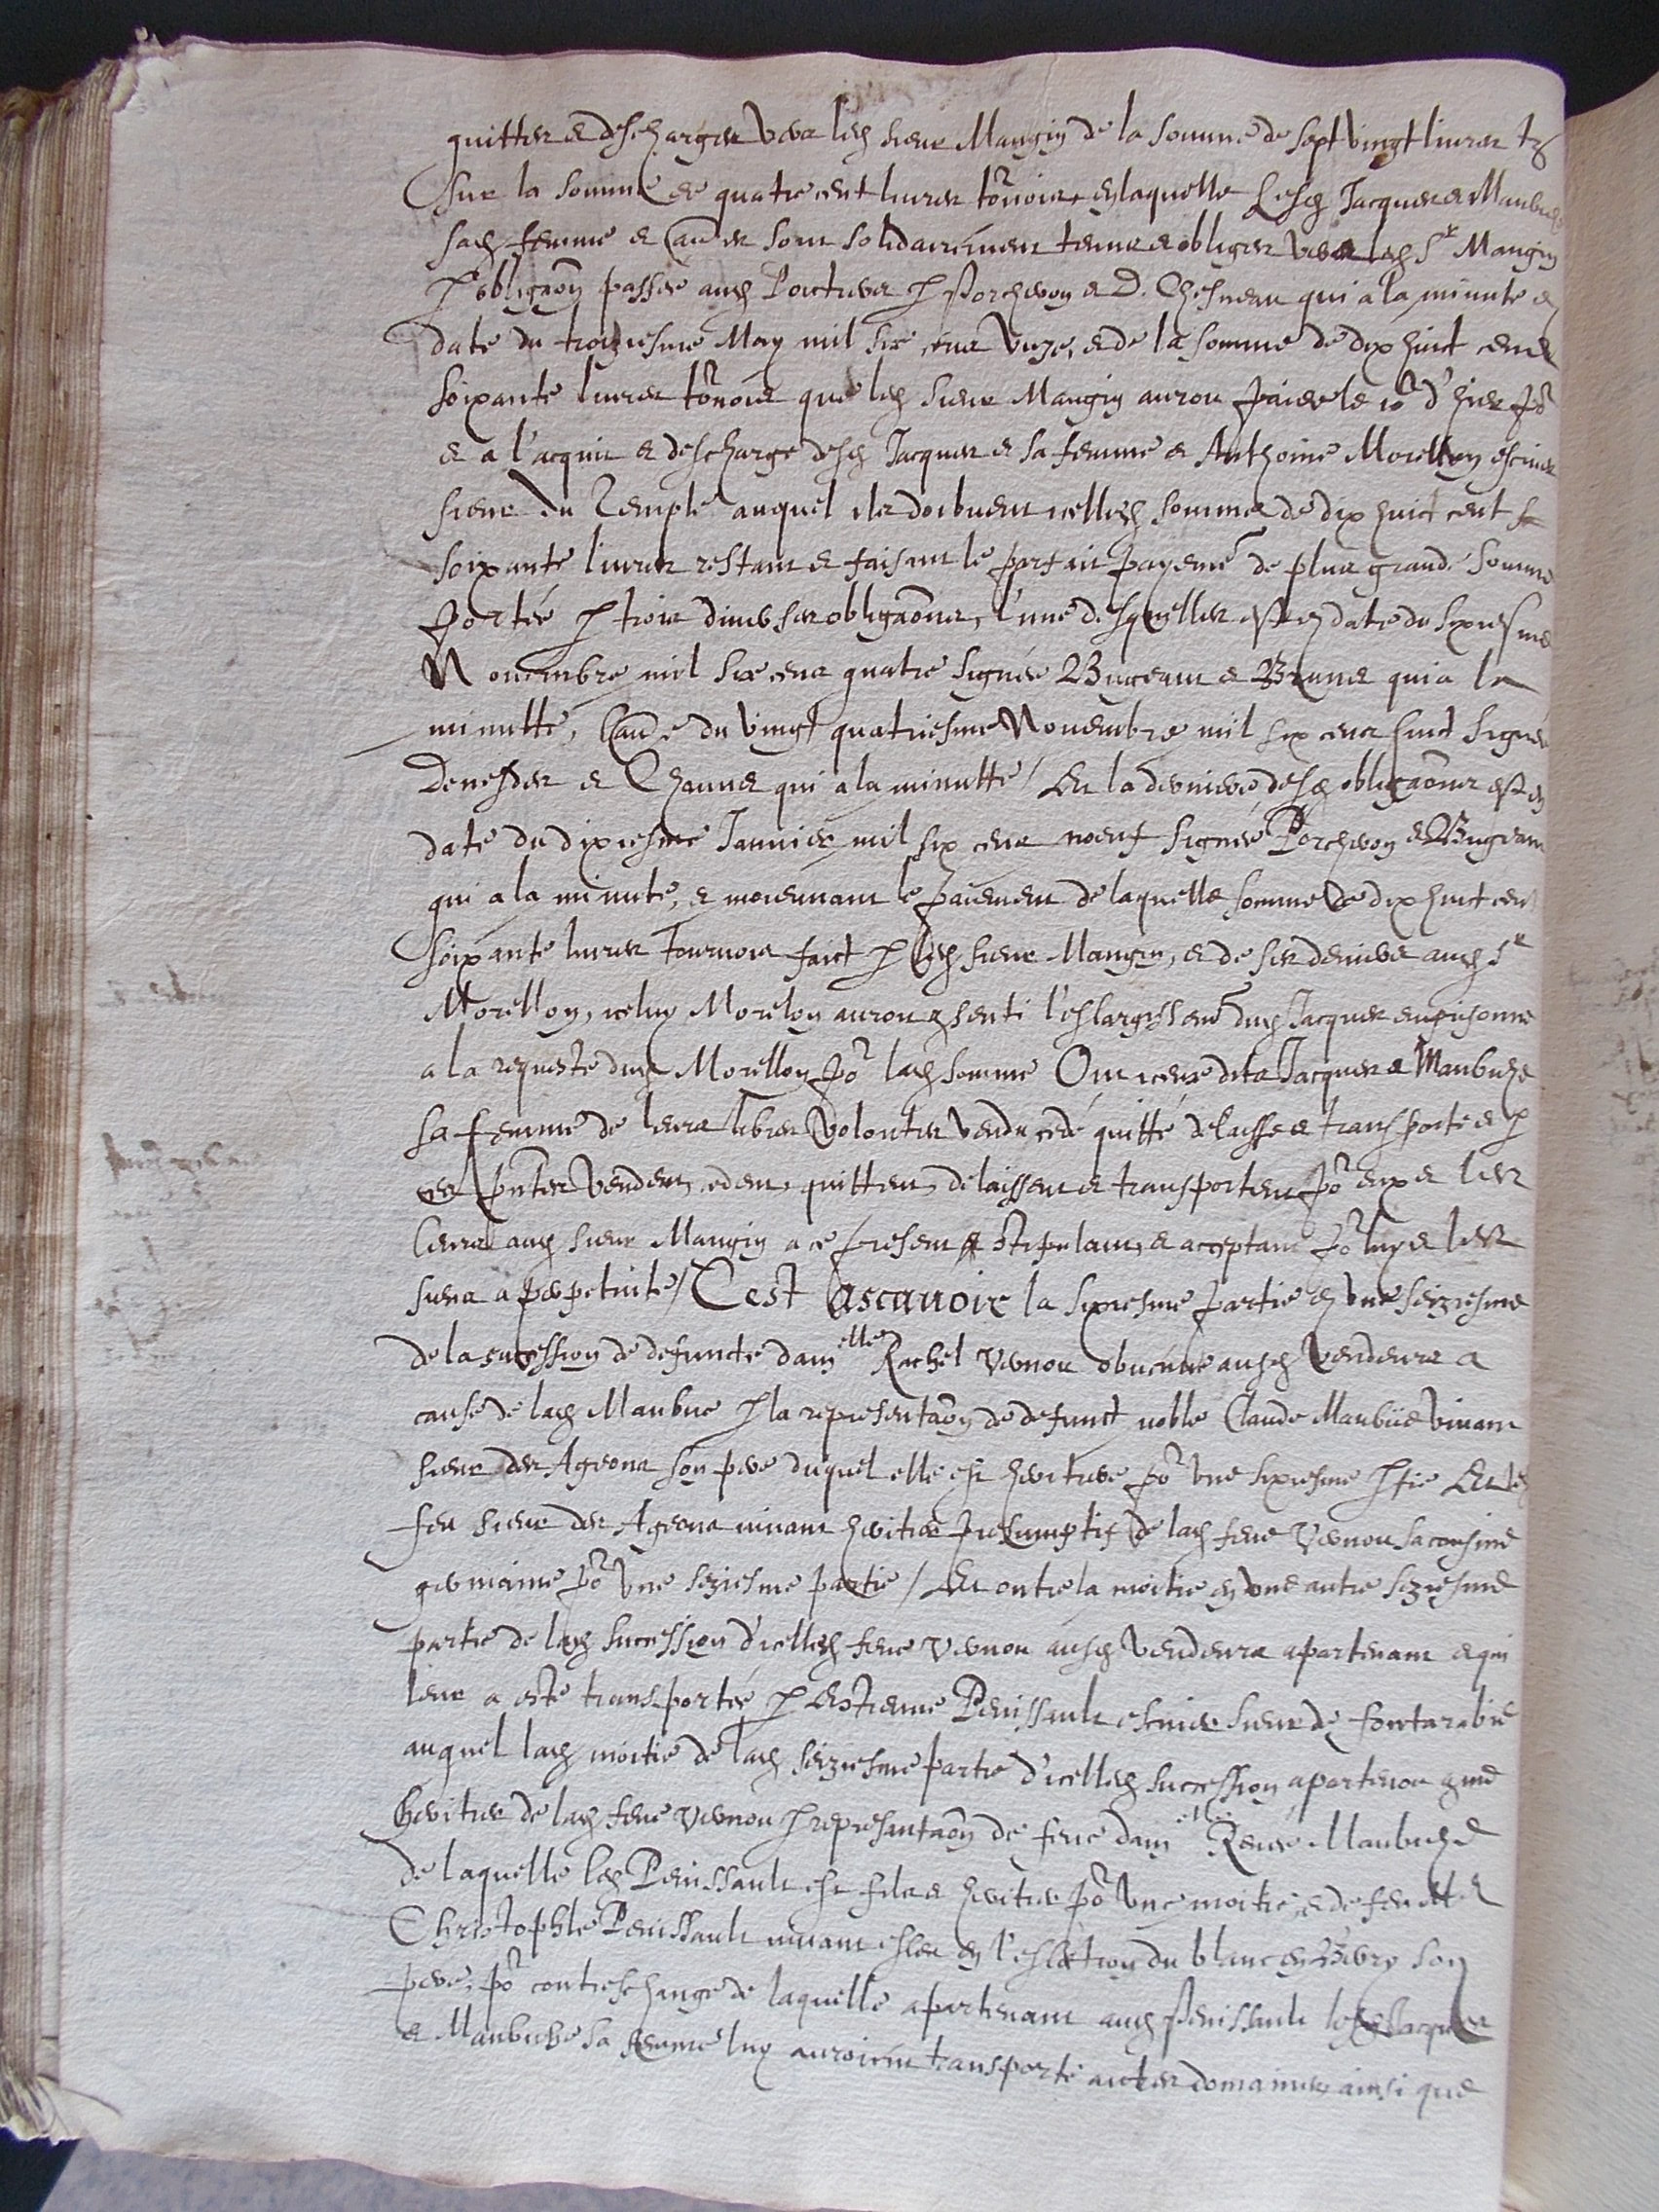 quitter & descharger vers led sieur Mangin de la somme de sept vingt livres tz
sur la somme de quatre cent livres tournois, en laquelle lesd Jacques & Maubué
sad femme & autres sont solidairement tenus & obligez vers led Sr Mangin
p obligaõn passée aud Poictiers p Porcheron & D. Chesneau qui a la minute en
date du troiziesme May mil six cens unze, & de la somme de dix huict cens
soixante livres tournois que led sieur Mangin auroit paiee le jor d'hier por
& a l'acquit & descharge desd Jacques & sa femme a Anthoine Morellon escuier
sieur du Temple auquel ils doibvent icelled somme de dix huict cent
soixante livres restant & faisant le parfait payemt de plus grande somme
portée p trois diverses obligaõns, l'une desquelles est en date du sixiesme
Novembre mil six cens quatre signée Bugeant & Brunet qui a la
minutte, l'autre du vingt quatriesme Novembre mil six cens huict signée
Denesdes & Chauvet qui a la minutte / Et la derniere desd obligaõns est en
date du dixiesme Janvier mil six cens noeuf signée Porcheron & Bugeant
qui a la minute, & moiennant le paiement de laquelle somme de dix huict cent
soixante livres tournois faict p led sieur Mangin, & de ses deniers aud Sr
Morellon, iceluy Morelon auroit consenti l'eslargissemt dud Jacques emprisonné
a la requeste dud Morellon por lad somme Ont iceux dits Jacques & Maubué
sa femme de leurs libres volontez vendu cédé quitté delaissé & transporté & p
ces pntes vendent, cedent, quittent, delaissent & transportent por eux & les
leurs aud sieur Mangin a ce present & stipulant, & acceptant por luy & les
siens a perpetuité / C'est ascavoir la sixiesme partie en une seiziesme
de la succession de defuncte damelle Rachel Vernou obvenue ausd vendeurs a
cause de lad Maubué p la representaõn de defunct noble Claude Maubué vivant
sieur des Ageons son pere duquel elle est heritiere por une sixiesme ptie Et led
feu sieur des Ageons vivant heritier presumptif de lad feue Vernou sa cousine
germaine por une seziesme partie / Et outre la moitie en une autre seziesme
partie de lad succession d'icelled feue Vernou ausd vendeurs apartenant & qui
leur a esté transportée p Estienne Penissault escuier sieur de Fontarabie
auquel lad moitie de lad seiziesme partie d'icelled succession apartenoit comme
heritier de lad feue Vernou p representaõn de feue damelle Renée Maubué
de laquelle led Penissault est fils & heritier por une moitie, & de feu Me
Christophle Penissault vivant esleu en l'eslection du blanc en Berry son
pere, por contreschange de laquelle apartenant aud Penissault lesd Jacques
& Maubué sa femme luy auroient transporté autres domaines ainsi que